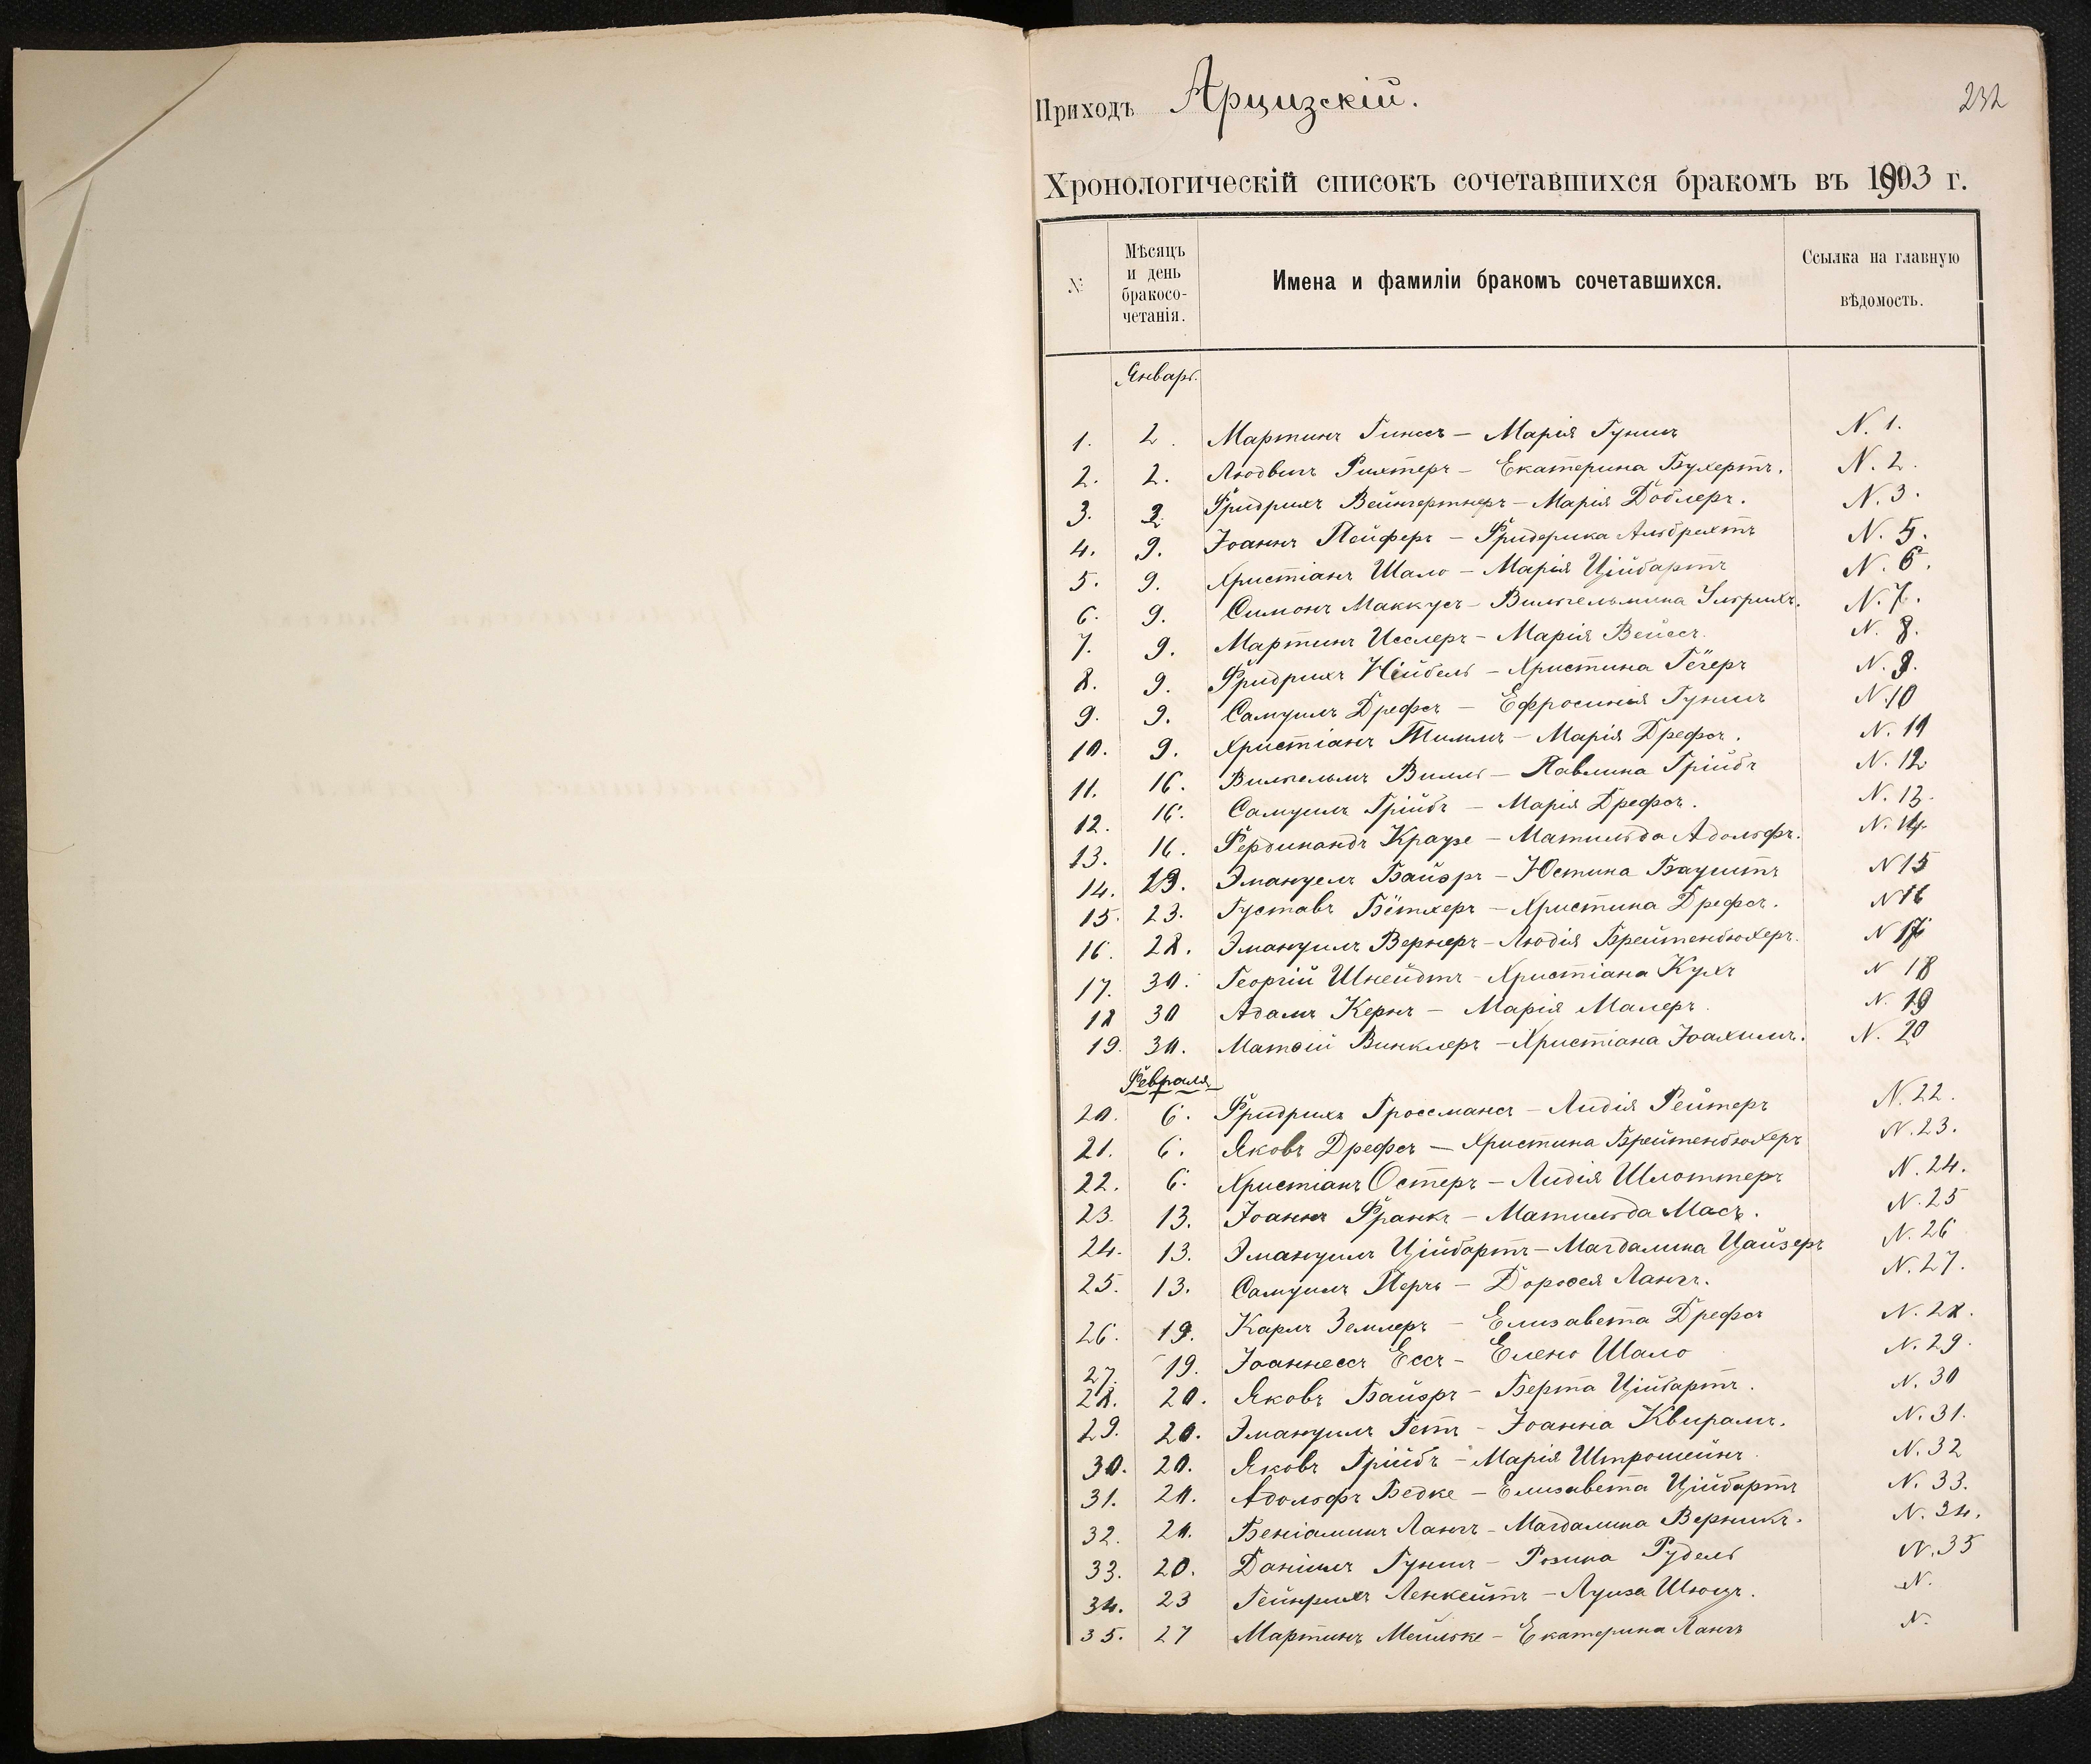 Приходъ Арцизскій.
232
Хронологическій списокъ сочетавшихся бракомъ въ 1903 г.
№
Мѣсяцъ
и день
бракосо-
четанія.
Имена и фамиліи бракомъ сочетавшихся.
Ссылка на главную
вѣдомость.
Январь.
1. 2. Мартинъ Гинсъ - Марія Гуншъ N. 1.
2. 2. Людвигъ Рихтеръ - Екатерина Бухертъ. N. 2.
3. 2 Фридрихъ Вейнгертнеръ - Марія Доблеръ. N. 3.
4. 9. Іоаннъ Пейферъ - Фридерика Альбрехтъ N. 5.
5. 9. Христіанъ Шало - Марія Ційбартъ N. 6.
6. 9. Симонъ Маккусъ - Вильгельмина Ульрихъ. N. 7.
7. 9. Мартинъ Исслеръ - Марія Вейссъ. N. 8.
8. 9. Фридрихъ Нейбель - Христина Гёгеръ N. 9.
9. 9. Самуилъ Дрефсъ - Ефросинія Гуншъ N. 10
10. 9. Христіанъ Тиммъ - Марія Дрефсъ. N. 11
11. 16. Вильгельмъ Вилль - Павлина Грійбъ N. 12
12. 16. Самуилъ Грійбъ - Марія Дрефсъ. N. 13.
13. 16. Фердинандъ Краузе - Матильда Адольфъ. N. 14.
14. 23. Эмануелъ Байэръ - Юстина Бауштъ N 15
15. 23. Густавъ Бётхеръ - Христина Дрефсъ. N 16
16. 28. Эмануилъ Вернеръ - Людія Брейтенбюхеръ. N 17
17. 30. Георгій Шнейдтъ - Христіана Кухъ N 18
18 30 Адамъ Кернъ - Марія Малеръ. N. 19
19. 30. Матѳій Винклеръ - Христіана Іоахимъ. N. 20
Февраля
20. 6. Фридрихъ Гроссмансъ - Лидія Рейтеръ N. 22.
21. 6. Яковъ Дрефсъ - Христина Брейтенбюхеръ N. 23.
22. 6. Христіанъ Остеръ - Лидія Шлоттеръ N. 24.
23. 13. Іоаннъ Франкъ - Матильда Масъ. N. 25
24. 13. Эмануилъ Ційбартъ - Магдалина Цайзеръ N. 26
25. 13. Самуилъ Лерхъ - Дороѳея Лангъ. N. 27.
26. 19. Карлъ Землеръ - Елизавета Дрефсъ N. 28.
27. 19. Іоаннессъ Ессъ - Елена Шало N. 29.
28. 20. Яковъ Байэръ - Берта Ційбартъ. N. 30
29. 20. Эмануилъ Гетъ - Іоанна Квирамъ. N. 31.
30. 20. Яковъ Грійбъ - Марія Штрошейнъ. N. 32
31. 20. Адольфъ Бедке - Елизавета Ційбартъ N. 33.
32. 20. Беніаминъ Лангъ - Магдалина Верникъ. N. 34.
33. 20. Даніилъ Гуншъ - Розина Рудель N. 35
34. 23 Гейнрихъ Ленкейтъ - Луиза Шюцъ. N.
35. 27 Мартинъ Мейльке - Екатерина Лангъ N.